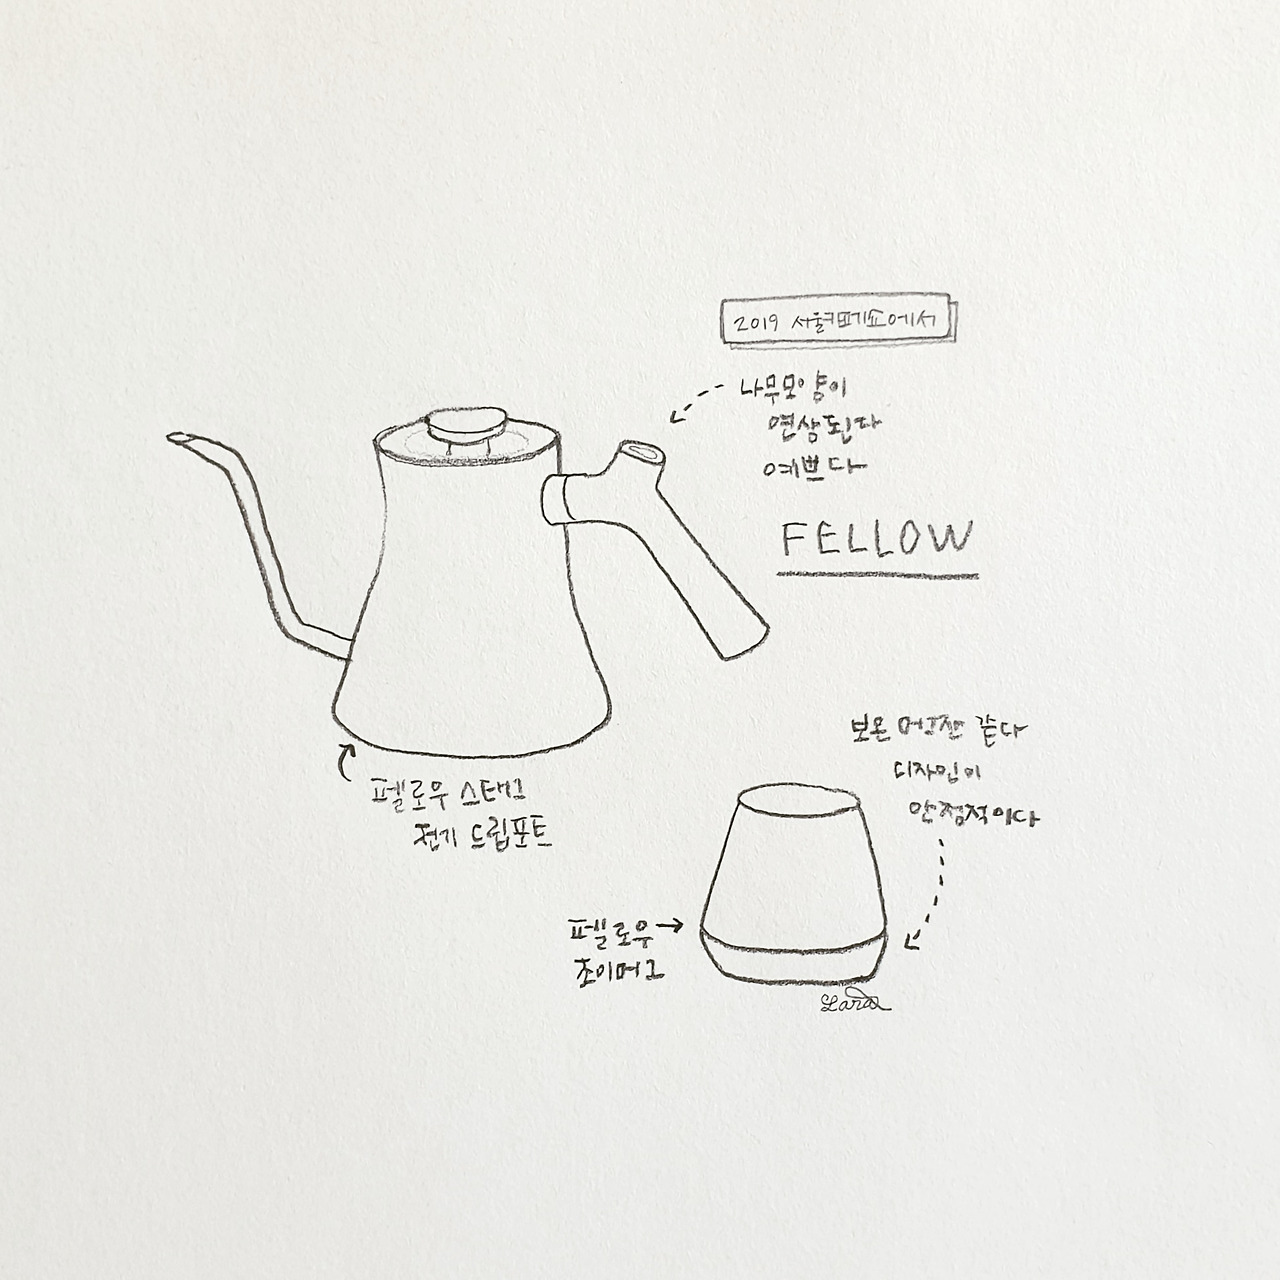 2019 서울카페쇼에서
나무모양이
연상된다
예쁘다
FELLOW
펠로우 스태그
전기 드립포트
보온 머그잔 같다
디자인이
안정적이다
펠로우
조이머그
Lara